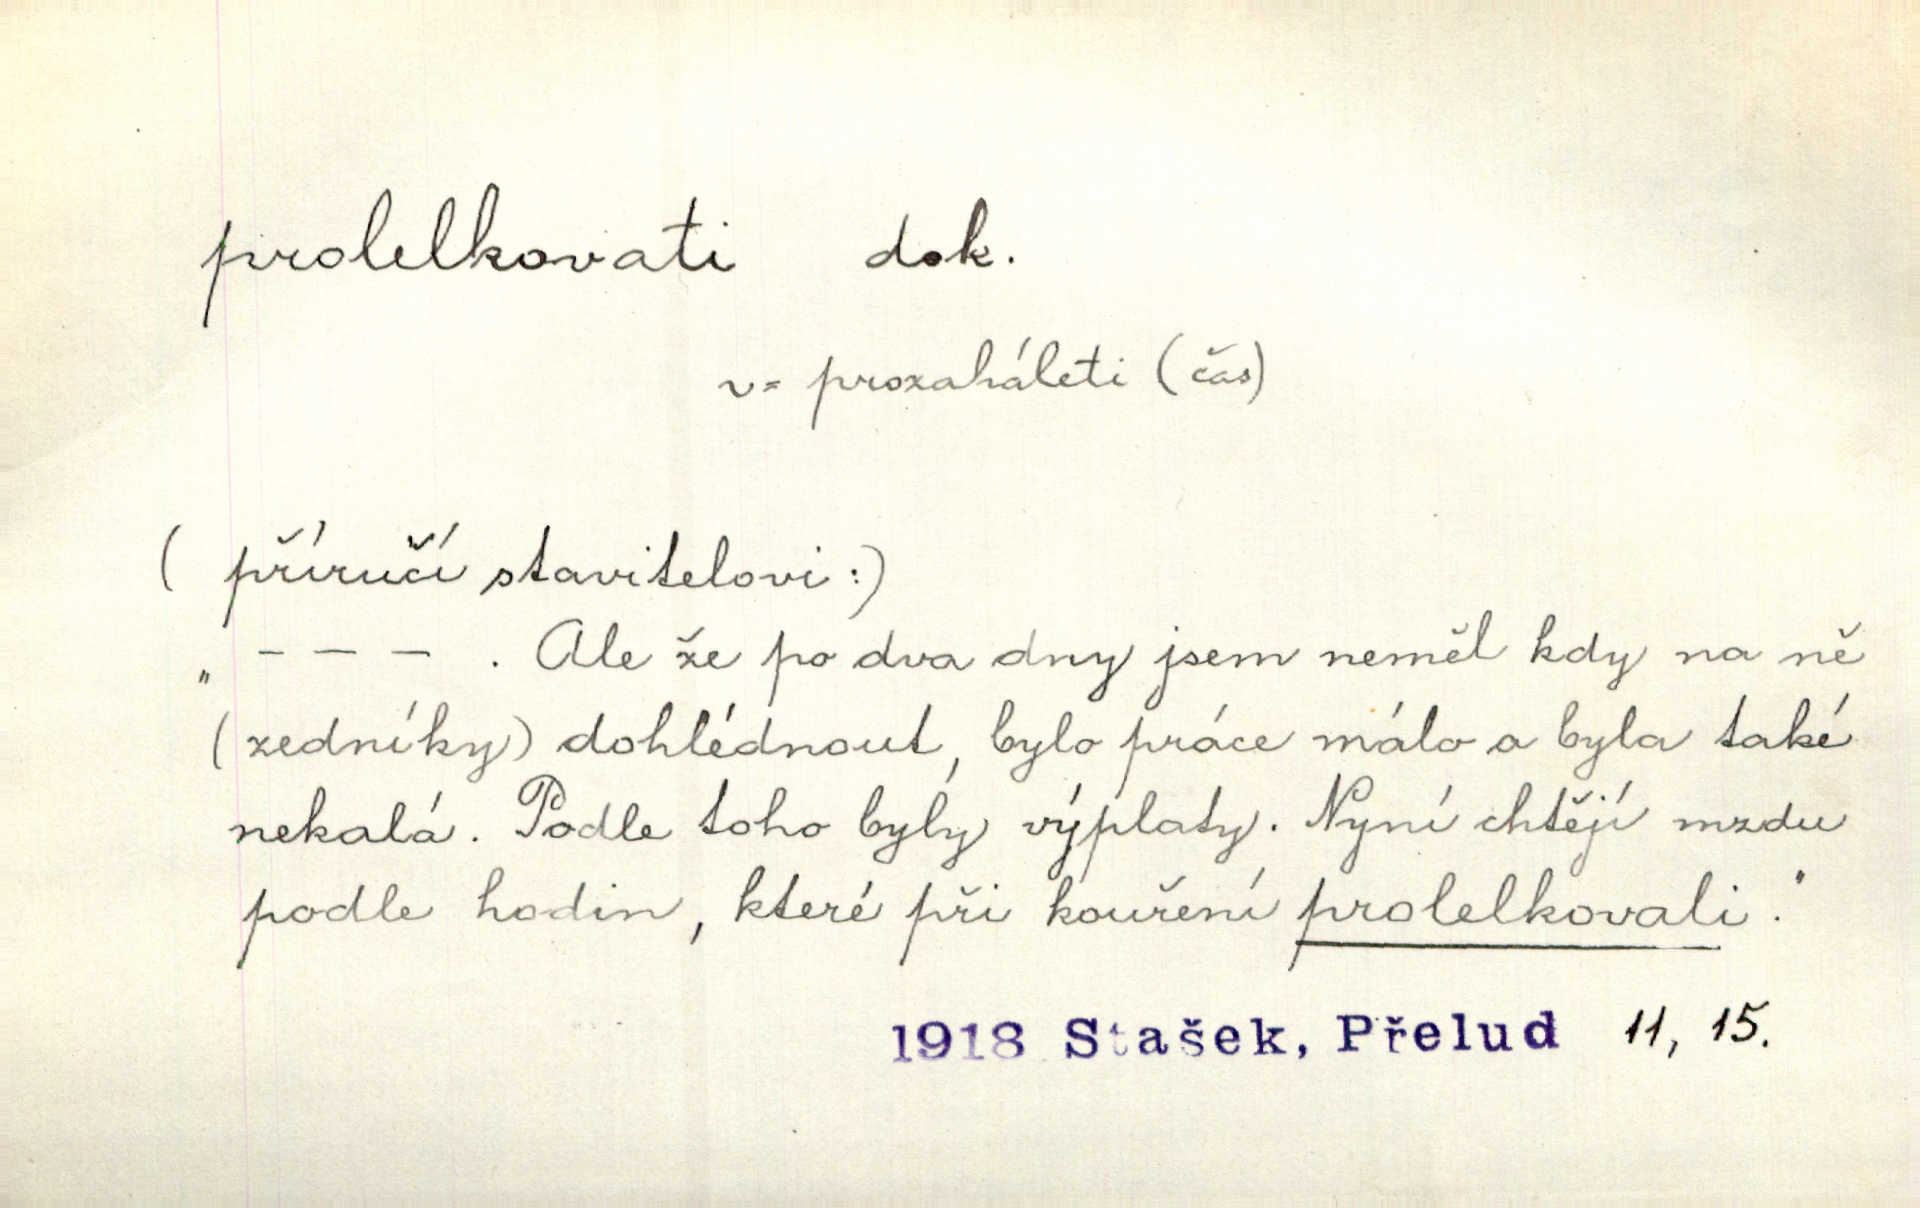 prolelkovati dok.
v= prozaháleti (čas)
( příručí stavitelovi:)
„ – – – . Ale že po dva dny jsem neměl kdy na ně
(zedníky) dohlédnout, bylo práce málo a byla také
nekalá. Podle toho byly výplaty. Nyní chtějí mzdu
podle hodin, které při kouření prolelkovali."
1918 Stašek, Přelud 11, 15.